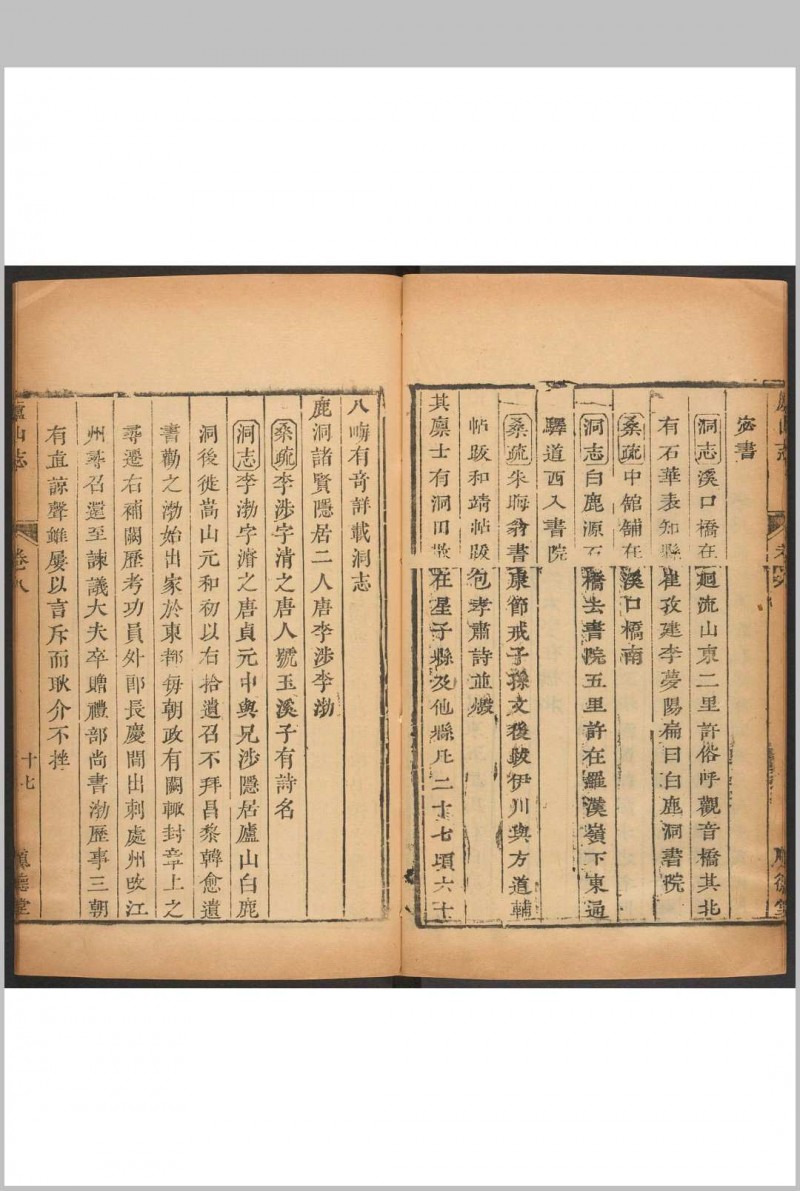 盧山志
密書
洞志溪口橋在廻流山東二里許俗呼觀音橋其北
有石華表知縣崔孜建李夢陽扁曰白鹿洞書院
桑疏中舘舖在溪口橋南
洞志白鹿源石橋去書院五里許在羅漢嶺下東通
驛道西入書院
桑疏朱晦翁書康節戒子孫文後跋伊川與方道輔
帖跋和靖帖跋包孝肅詩並燬
其廩士有洞田散在星子縣及他縣凡二十七頃六十
八畮有竒詳載洞志
鹿洞諸賢隱居二人唐李涉李渤
桑疏李涉字清之唐人號玉溪子有詩名
洞志李渤字濬之唐貞元中與兄涉隱居廬山白鹿
洞後徙嵩山元和初以右拾遺召不拜昌黎韓愈遺
書勸之渤始出家於東都每朝政有闕輒封章上之
尋遷右補闕歷考功員外郎長慶間出刺處州改江
州尋召還至諫議大夫卒贈禮部尚書渤歷事三朝
有直諒聲雖屢以言斥而耿介不挫
廬山志
卷八
十七
順德堂